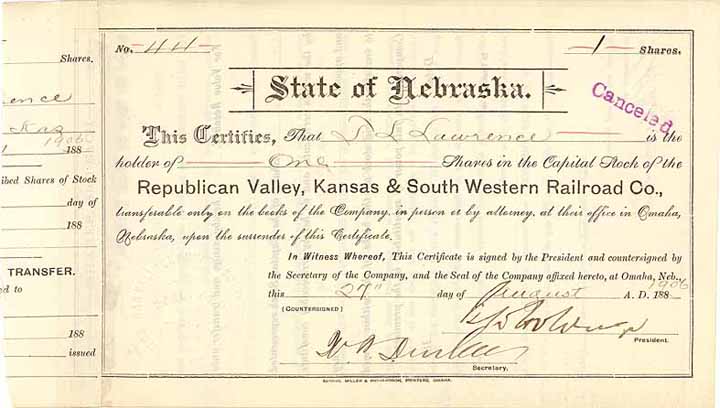 Shares.
rence
Kas
1906
188
ibed Shares of Stock
day of
188
TRANSFER.
ed to
188
issued
No. 44
1 Shares.
State of Nebraska.
Canceled
This Certifies, That L Lawrence is the
holder of One Shares in the Capital Stock of the
Republican Valley, Kansas & South Western Railroad Co.,
transferable only on the books of the Company, in person or by attorney, at their office in Omaha,
Nebraska, upon the surrender of this Certificate.
In Witness Whereof, This Certificate is signed by the President and countersigned by
the Secretary of the Company, and the Seal of the Company affixed hereto, at Omaha, Neb.,
this 27" day of August A. D. 188 1906
(COUNTERSIGNED)
President.
Secretary.
MILLER & RICHARDSON, PRINTERS, OMAHA.